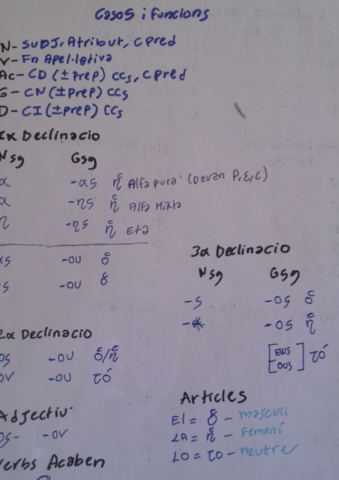 Casos i Funcions
N- SUBJ, Atribut, CPred
V- Fn Apel·lativa
Ac- CD (±PreP) CCs, CPred
G- CN (±PreP) CCs
D- CI (±PreP) CCs
1α Declinacio
Nsg Gsg
α -ας ἡ Alfa pura (Devan P,E,C)
α -ης ἡ Alfa Mixta
η -ης ἡ Eta
ας -ου ὁ
ης -ου ὁ
2α Declinacio
ος -ου ὁ/ἡ
ον -ου τό
Adjectiu
ος- -ον
Verbs Acaben
3α Declinacio
Nsg Gsg
-ς -ος ὁ
-* -ος ἡ
[εως ους] τό
Articles
El = ὁ - masculí
LA = ἡ - Femení
LO = το - neutre